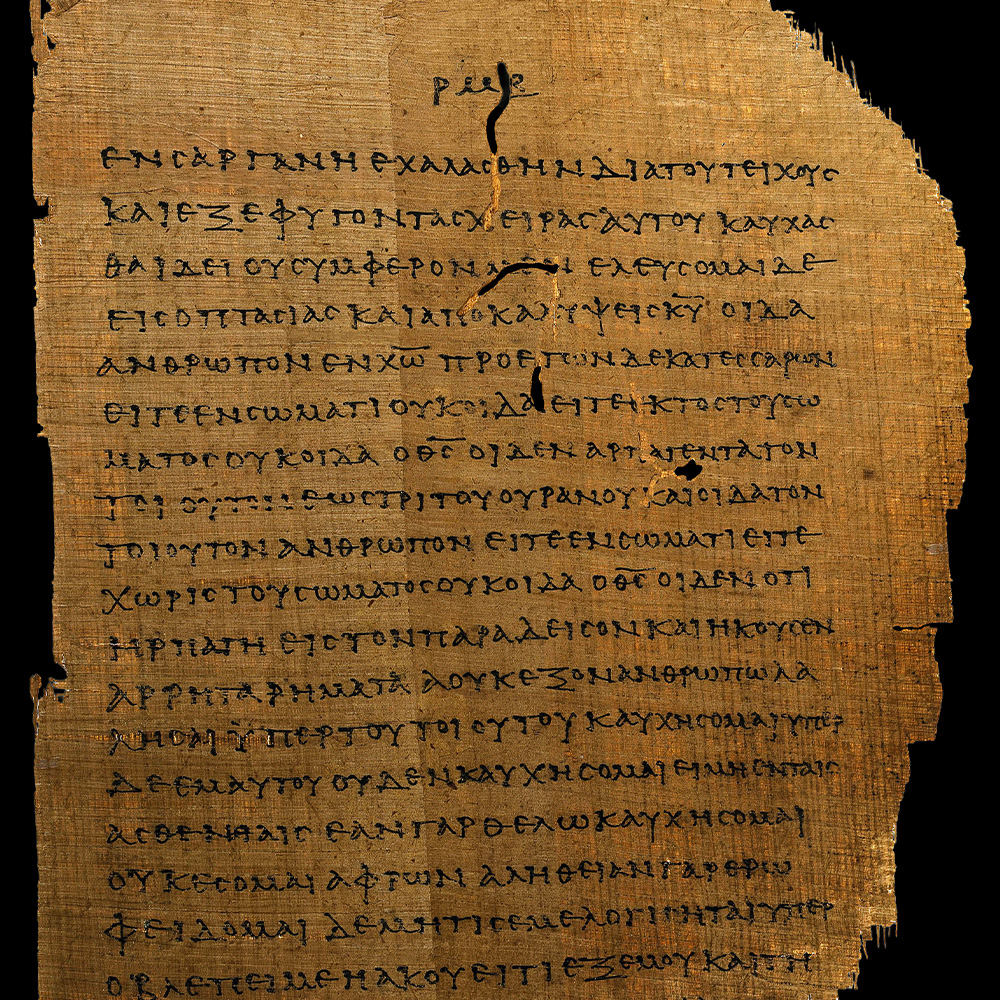 ρμε
ΕΝ ϹΑΡΓΑΝΗ ΕΧΑΛΑϹΘΗΝ ΔΙΑ ΤΟΥ ΤΕΙΧΟΥϹ
ΚΑΙ ΕΞΕΦΥΓΟΝ ΤΑϹ ΧΕΙΡΑϹ ΑΥΤΟΥ ΚΑΥΧΑϹ
ΘΑΙ ΔΕΙ ΟΥ ϹΥΜΦΕΡΟΝ ΜΕΝ ΕΛΕΥϹΟΜΑΙ ΔΕ
ΕΙϹ ΟΠΤΑϹΙΑϹ ΚΑΙ ΑΠΟΚΑΛΥΨΕΙϹ Κ̅Υ̅ ΟΙΔΑ
ΑΝΘΡΩΠΟΝ ΕΝ Χ̅Ω̅ ΠΡΟ ΕΤΩΝ ΔΕΚΑΤΕϹϹΑΡΩΝ
ΕΙΤΕ ΕΝ ϹΩΜΑΤΙ ΟΥΚ ΟΙΔΑ ΕΙΤΕ ΕΚΤΟϹ ΤΟΥ ϹΩ
ΜΑΤΟϹ ΟΥΚ ΟΙΔΑ Ο Θ̅Ϲ̅ ΟΙΔΕΝ ΑΡΠΑΓΕΝΤΑ ΤΟΝ
ΤΟΙΟΥΤΟΝ ΕΩϹ ΤΡΙΤΟΥ ΟΥΡΑΝΟΥ ΚΑΙ ΟΙΔΑ ΤΟΝ
ΤΟΙΟΥΤΟΝ ΑΝΘΡΩΠΟΝ ΕΙΤΕ ΕΝ ϹΩΜΑΤΙ ΕΙΤΕ
ΧΩΡΙϹ ΤΟΥ ϹΩΜΑΤΟϹ ΟΥΚ ΟΙΔΑ Ο Θ̅Ϲ̅ ΟΙΔΕΝ ΟΤΙ
ΗΡΠΑΓΗ ΕΙϹ ΤΟΝ ΠΑΡΑΔΕΙϹΟΝ ΚΑΙ ΗΚΟΥϹΕΝ
ΑΡΡΗΤΑ ΡΗΜΑΤΑ Α ΟΥΚ ΕΞΟΝ ΑΝΘΡΩΠΩ ΛΑ
ΛΗϹΑΙ ΫΠΕΡ ΤΟΥ ΤΟΙΟΥΤΟΥ ΚΑΥΧΗϹΟΜΑΙ ΥΠΕΡ
ΔΕ ΕΜΑΥΤΟΥ ΟΥΔΕΝ ΚΑΥΧΗϹΟΜΑΙ ΕΙ ΜΗ ΕΝ ΤΑΙϹ
ΑϹΘΕΝΗΑΙϹ ΕΑΝ ΓΑΡ ΘΕΛΩ ΚΑΥΧΗϹΟΜΑΙ
ΟΥΚ ΕϹΟΜΑΙ ΑΦΡΩΝ ΑΛΗΘΕΙΑΝ ΓΑΡ ΕΡΩ
ΦΕΙΔΟΜΑΙ ΔΕ ΜΗ ΤΙϹ ΕΜΕ ΛΟΓΙϹΗΤΑΙ ΥΠΕΡ
Ο ΒΛΕΠΕΙ ΜΕ Η ΑΚΟΥΕΙ ΤΙ ΕΞ ΕΜΟΥ ΚΑΙ ΤΗ